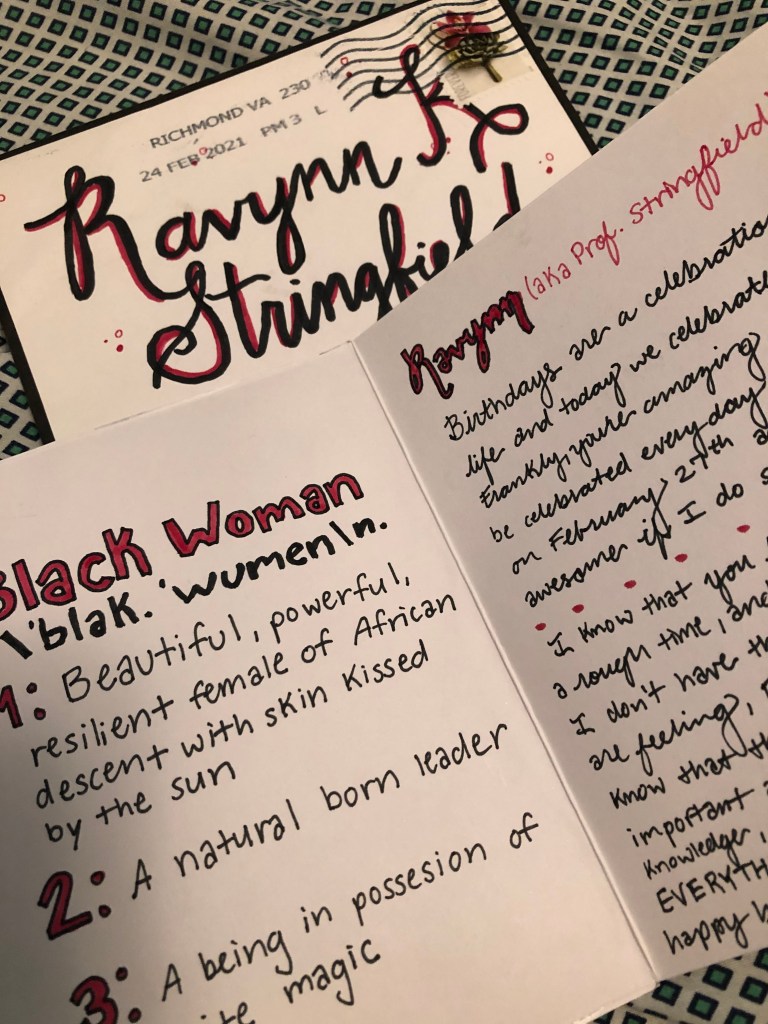 RICHMOND VA 230
24 FEB 2021 PM 3 L
Ravynn K
Stringfield
Black Woman
\'blak. 'wumen\n.
1: Beautiful, powerful,
resilient female of African
descent with skin kissed
by the sun
2: A natural born leader
3: A being in possesion of
magic
Ravynn (aka Prof. Stringfield)
Birthdays are a celebration
life and today we celebrate
Frankly, you're amazing
be celebrated every day
on February 27th
awesome if I do
I know that you
a rough time, and
I don't have the
are feeling,
know that
important
knowledge,
happy